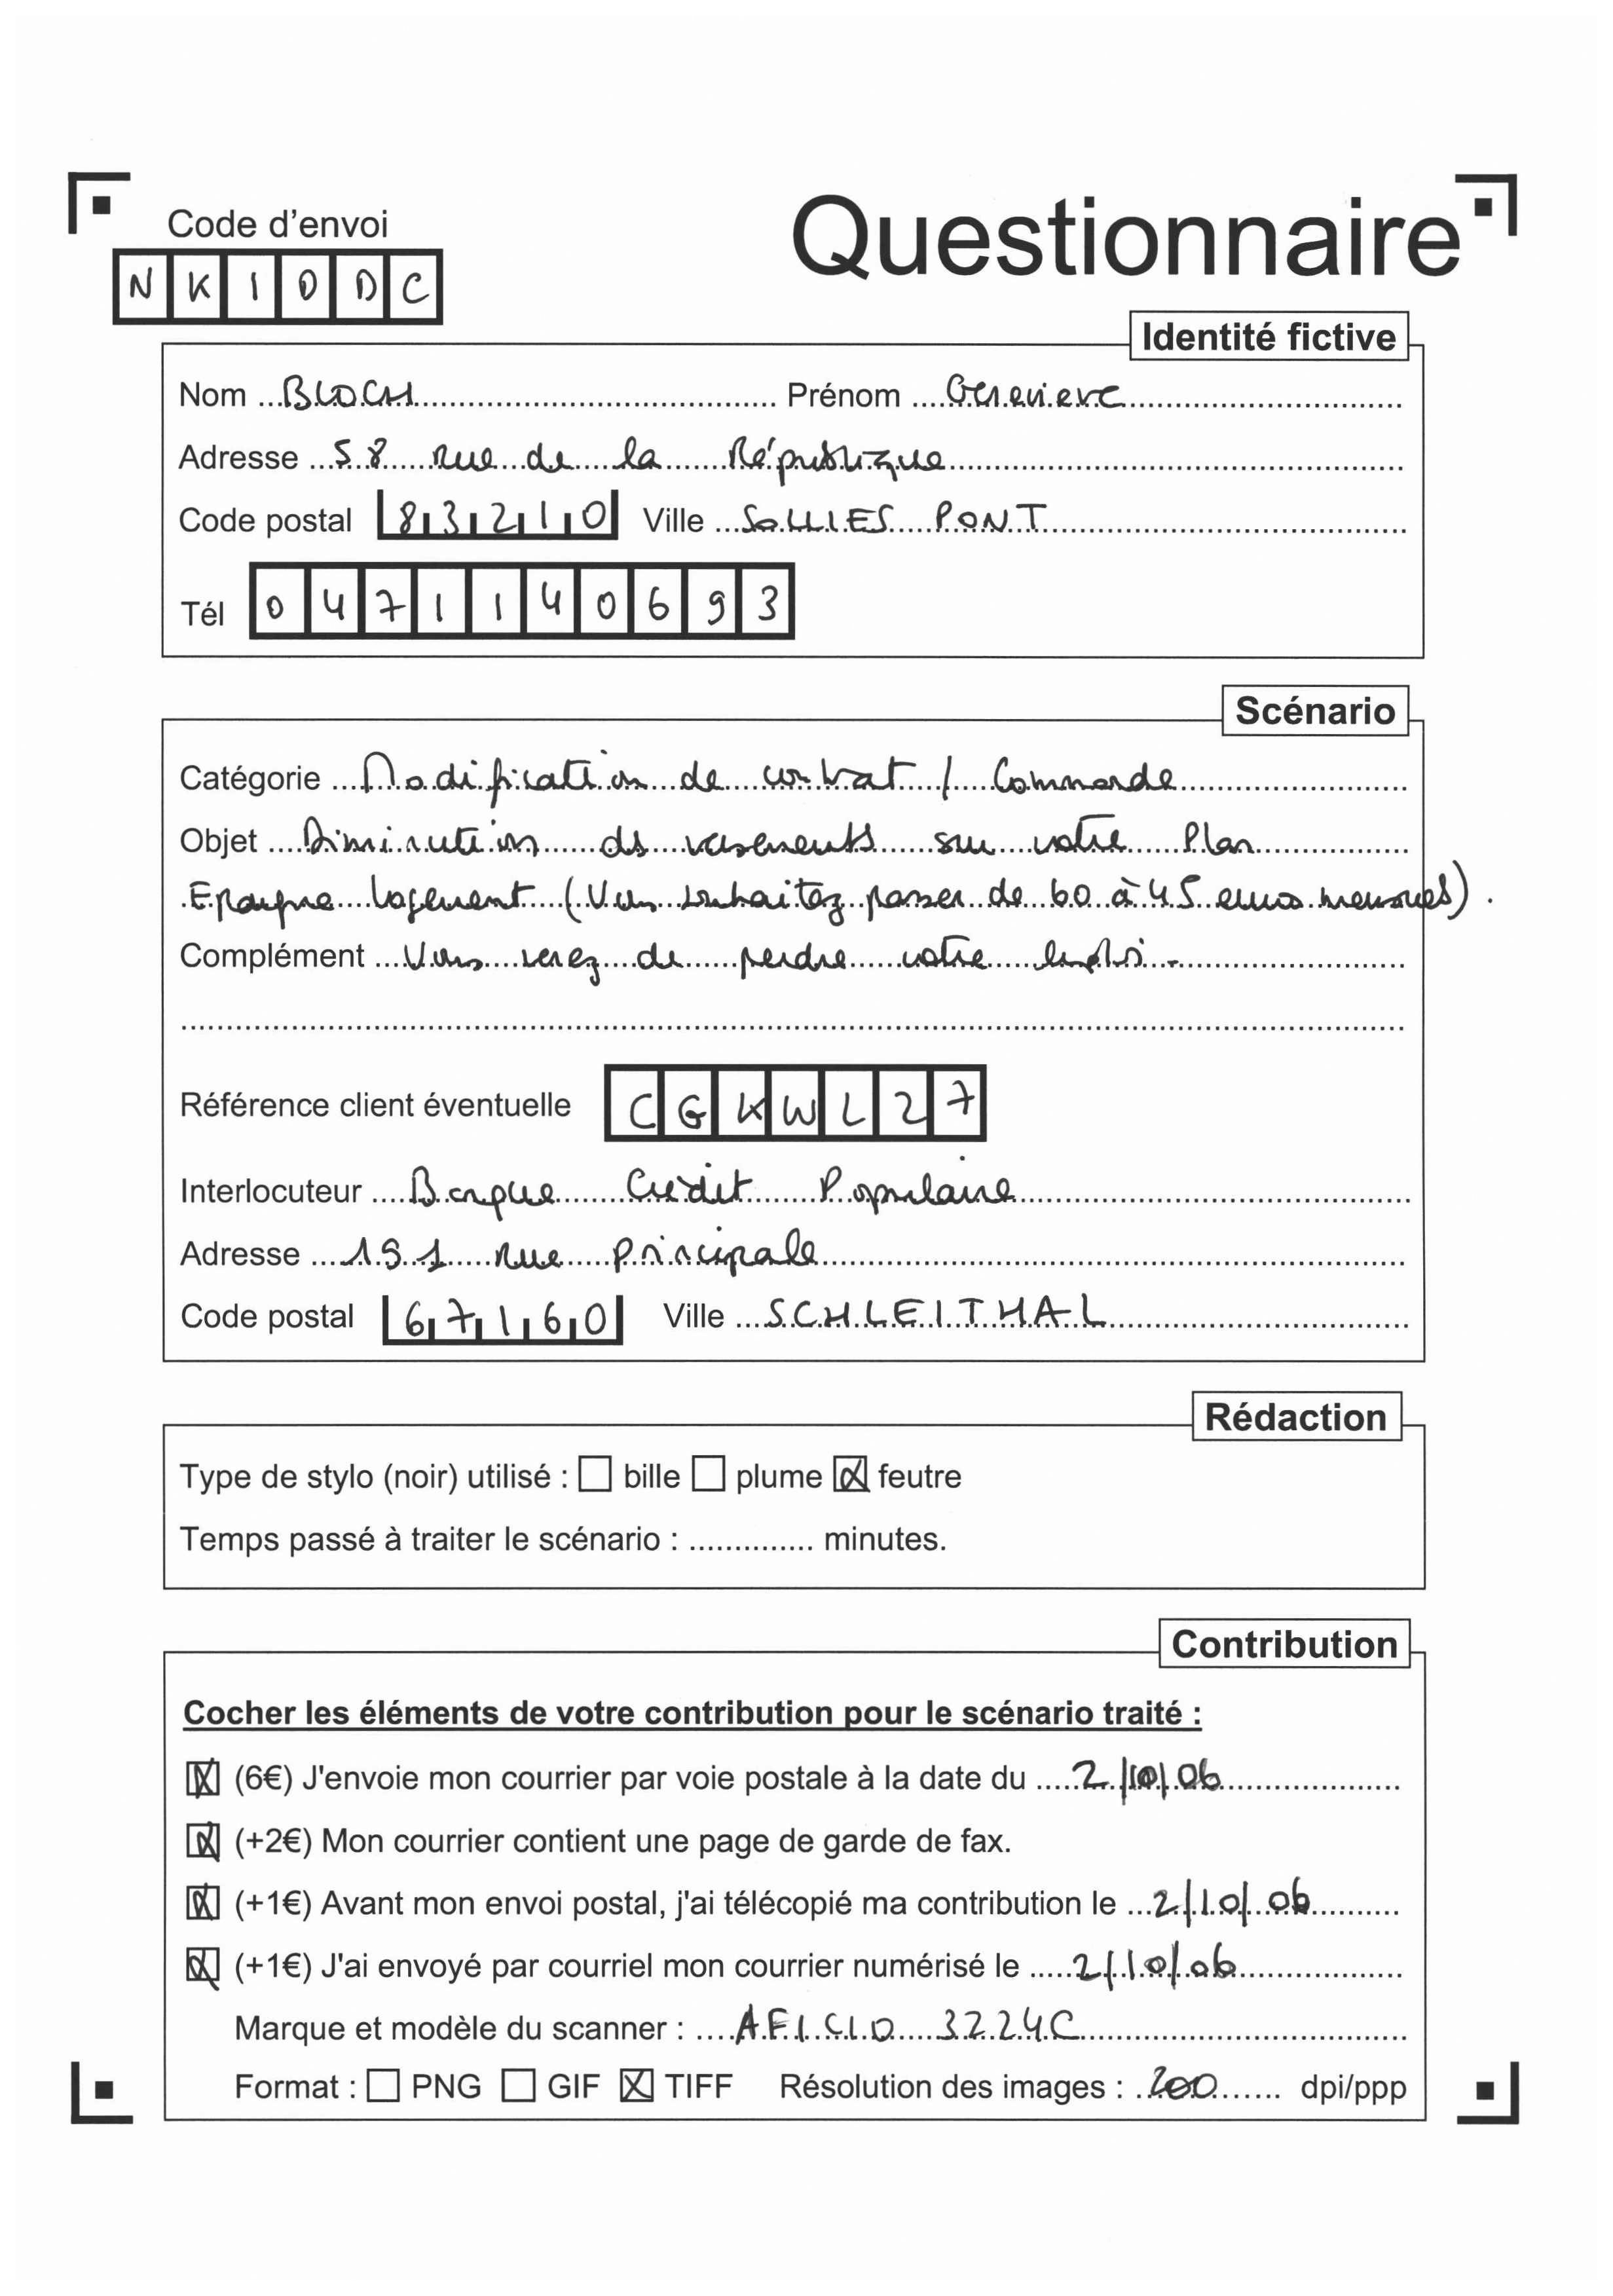 Questionnaire
Code d'envoi
NKIODC
Identité fictive
Nom BLOCH Prénom Genevieve
Adresse 58 rue de la République
Code postal 83210 Ville SOLLIES PONT
Tél 0471140693
Scénario
Catégorie Modification de contrat / Commande
Objet Diminution des versements sur votre Plan
Epargne logement (Vous souhaitez passer de 60 à 45 euros mensuels).
Complément Vous venez de perdre votre emploi -
Référence client éventuelle CGKWL27
Interlocuteur Banque Crédit Populaire
Adresse 191 rue principale
Code postal 67160 Ville SCHLEITHAL
Rédaction
Type de stylo (noir) utilisé : bille plume feutre
Temps passé à traiter le scénario : ............. minutes.
Contribution
Cocher les éléments de votre contribution pour le scénario traité :
(6€) J'envoie mon courrier par voie postale à la date du 2/10/06
(+2€) Mon courrier contient une page de garde de fax.
(+1€) Avant mon envoi postal, j'ai télécopié ma contribution le 2/10/06
(+1€) J'ai envoyé par courriel mon courrier numérisé le 2/10/06
Marque et modèle du scanner : AFICIO 3224C
Format : PNG GIF TIFF Résolution des images : 200 dpi/ppp